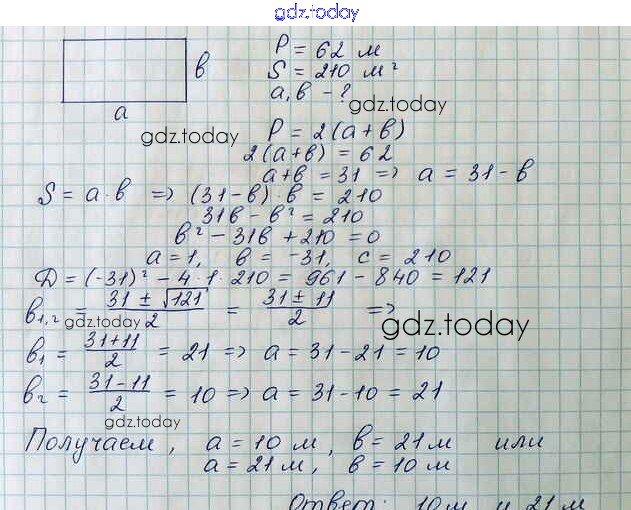 gdz.today
P = 62 м
в
S = 210 м²
a, в - ?
gdz.today
a
gdz.today
P = 2(a+в)
2(a+в) = 62
a+в = 31 => a = 31-в
S = a·в => (31-в)·в = 210
31в - в² = 210
в² - 31в + 210 = 0
a = 1, в = -31, c = 210
Д = (-31)² - 4·1·210 = 961 - 840 = 121
в₁,₂ = (31 ± √121)/2 = (31 ± 11)/2 =>
gdz.today
gdz.today
в₁ = (31+11)/2 = 21 => a = 31-21 = 10
в₂ = (31-11)/2 = 10 => a = 31-10 = 21
gdz.today
Получаем, a = 10 м, в = 21 м или
a = 21 м, в = 10 м
Ответ: 10 м и 21 м